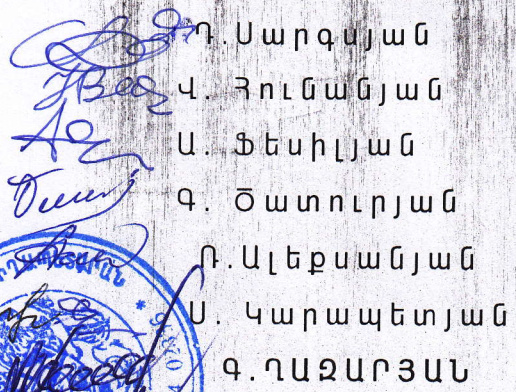 Դ.Սարգսյան
Վ. Հունանյան
Ա. Ֆեսիլյան
Գ. Ծատուրյան
Ռ.Ալեքսանյան
Ս. Կարապետյան
Գ.ՂԱԶԱՐՅԱՆ